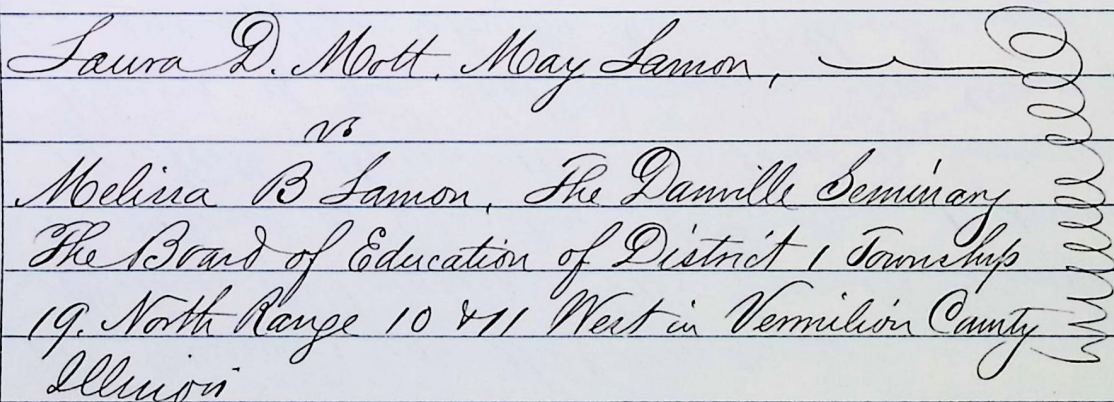 Laura D. Mott. May Lamon,
vs
Melissa B Lamon, The Danville Seminary
The Board of Education of District 1 Township
19. North Range 10 & 11 West in Vermilion County
Illinois